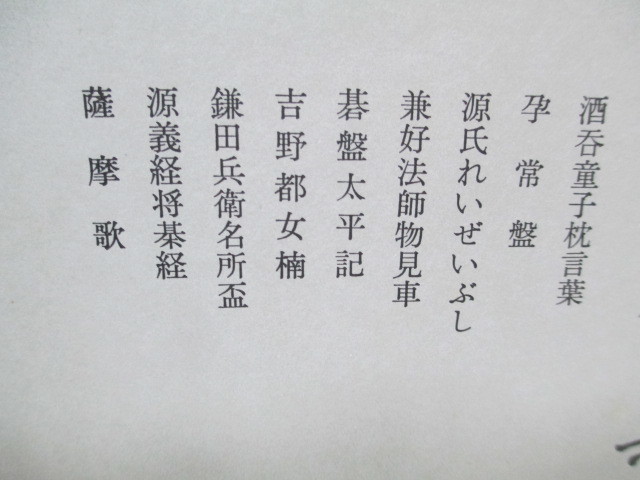 酒呑童子枕言葉
孕常盤
源氏れいぜいぶし
兼好法師物見車
碁盤太平記
吉野都女楠
鎌田兵衛名所盃
源義経将棊経
薩摩歌